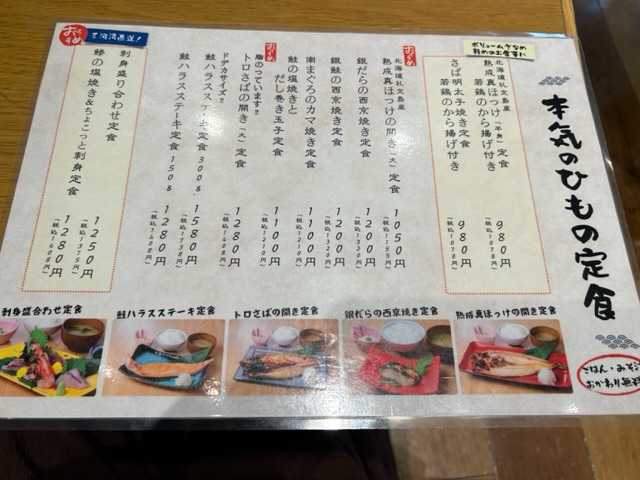 本気のひもの定食
ボリューム少なめ
北海道礼文島産
熟成真ほっけ(半身)定食
若鶏のから揚げ付き
980円
(税込1078円)
さば明太子焼き定食
若鶏のから揚げ付き
980円
(税込1078円)
おすすめ
北海道礼文島産
熟成真ほっけの開き(大)定食
1050円
(税込1155円)
銀だらの西京焼き定食
1200円
(税込1320円)
銀鮭の西京焼き定食
1200円
(税込1320円)
南まぐろのカマ焼き定食
1100円
(税込1210円)
鮭の塩焼きと
だし巻き玉子定食
1100円
(税込1210円)
おすすめ
脂のっています!!
トロさばの開き(大)定食
1280円
(税込1408円)
ドデカサイズ!!
鮭ハラスステーキ定食300g
1580円
(税込1738円)
鮭ハラスステーキ定食150g
1280円
(税込1408円)
おすすめ
沼津直送!
刺身盛り合わせ定食
1250円
(税込1375円)
鯵の塩焼き&ちょこっと刺身定食
1280円
(税込1408円)
刺身盛り合わせ定食
鮭ハラスステーキ定食
トロさばの開き定食
銀だらの西京焼き定食
熟成真ほっけの開き定食
ごはん・みそ汁
おかわり無料